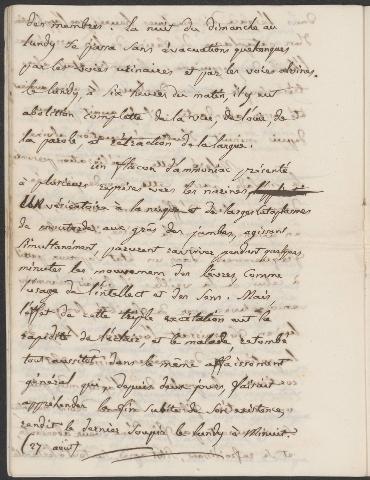 des membres. La nuit du dimanche au
lundy se passa sans évacuations quelconques
par les voies urinaires et par les voies alvines.
Le lundy, à six heures du matin, il y eut
abolition complette de la vue, de l'ouïe, de
la parole et rétraction de la langue.
Un flacon d'ammoniac, présenté
à plusieurs reprises vers les narines,
un vésicatoire à la nuque et de larges cataplasmes
de moutarde aux gras des jambes, agissant
simultanément, parurent raviver pendant quelques
minutes les mouvemens des lèvres, comme
l'usage de l'intellect et des sens. Mais
l'effet de cette triple excitation eut la
rapidité de l'éclair, et le malade, retombé
tout aussitôt dans le même affaissement
général qui depuis deux jours faisait
appréhender la fin subite de son existence,
rendit le dernier soupir le lundy à minuit.
(27 août)